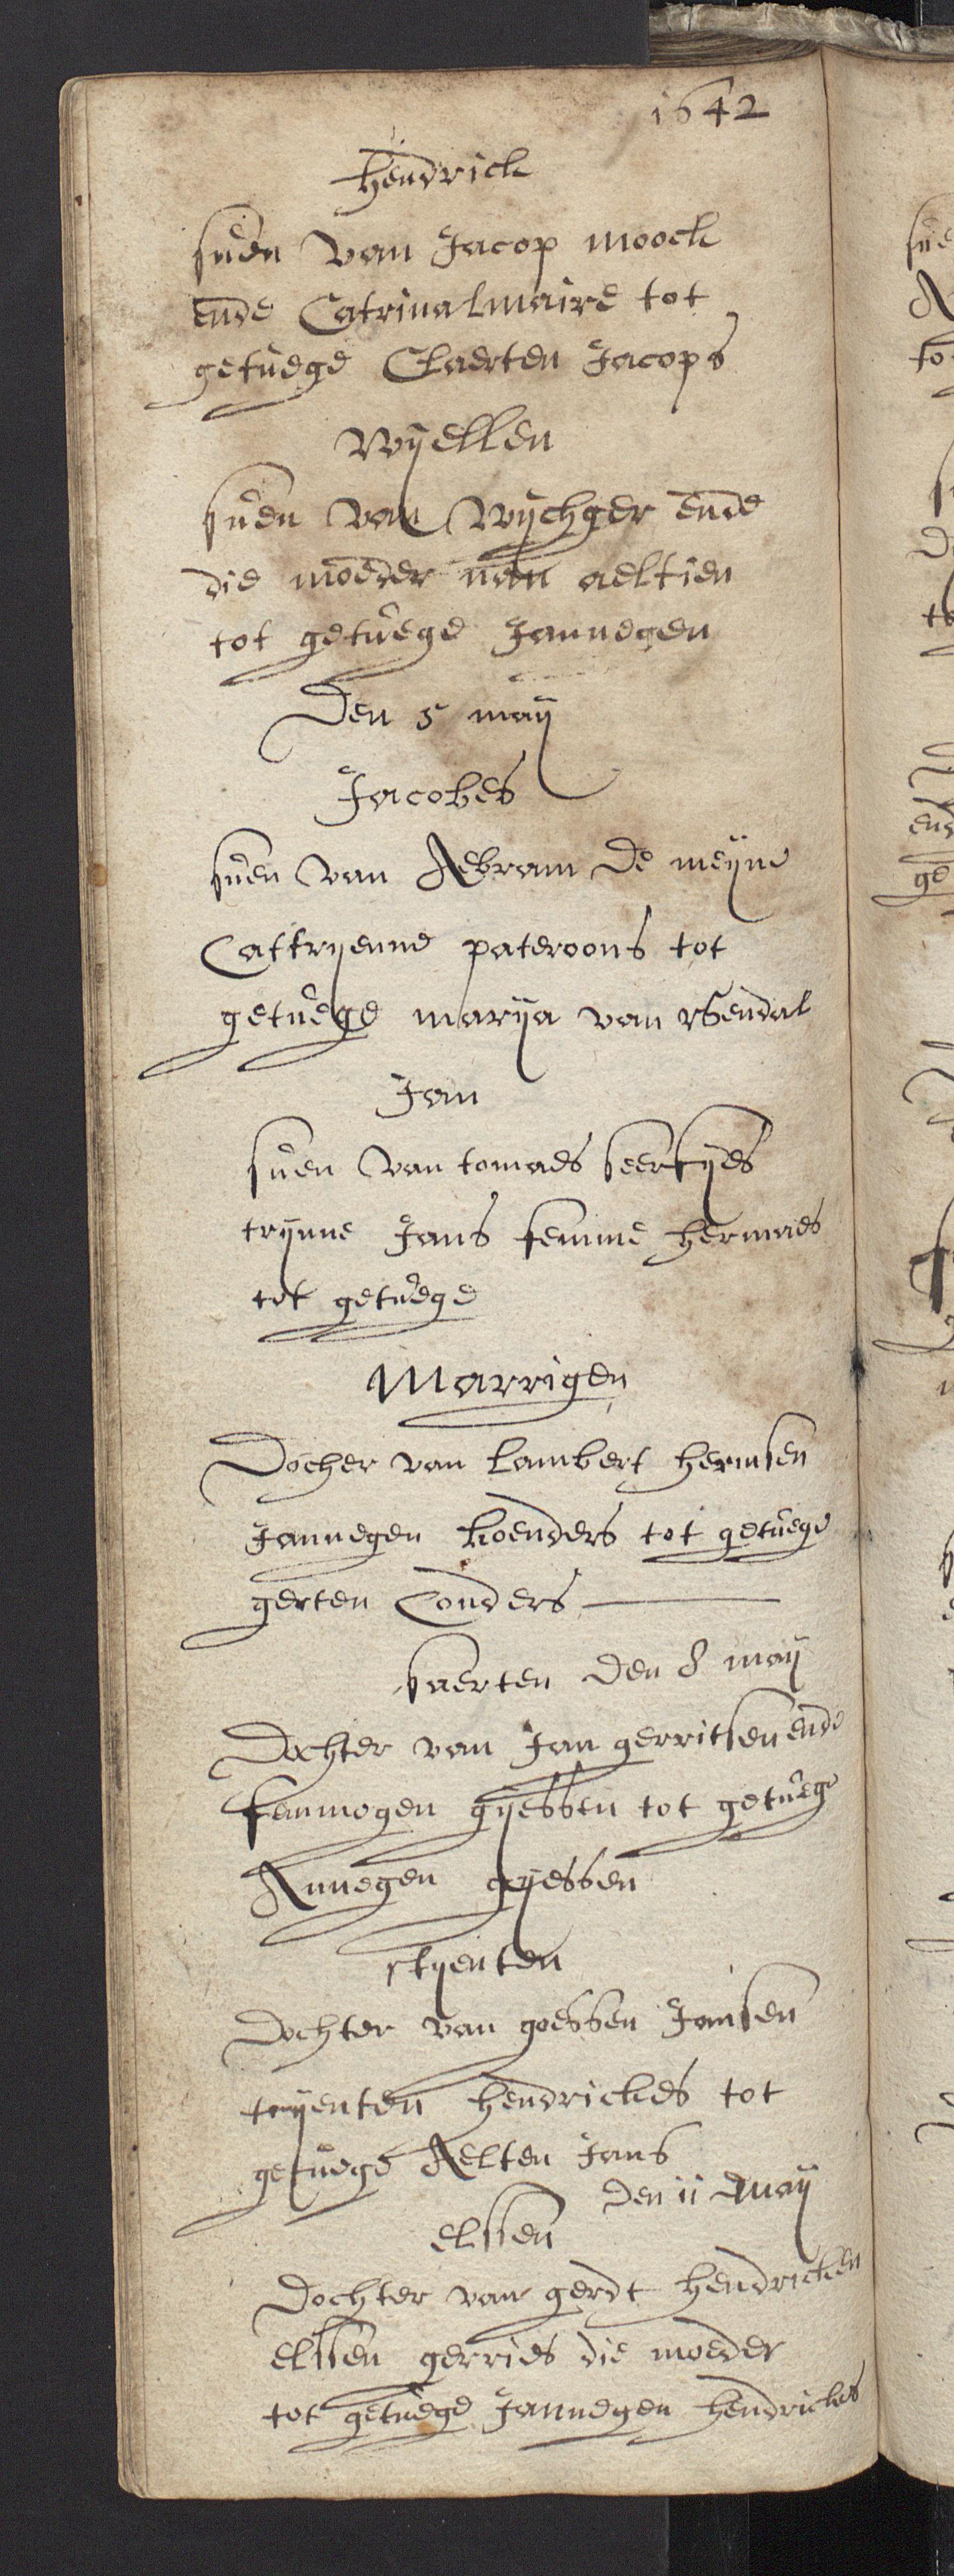 1642
Hendrick
suen van Jacop moock
ende Catrina lmaire tot
getuege Claerten Jacops
Wyellen
suen van Wychger ende
die moeder van aeltien
tot getuege Jannegen
Den 5 maij
Jacobes
suen van Aebram de meijne
Cattryenne pateroons tot
getuege marija van
Jan
suen van tomaes seertijes
trijnne Jans femme hermaes
tot getuege
Marrigen
Docher van Lambert hermsen
Jannegen koenders tot getuege
gerten Conders
saerten den 8 maij
Dochter van Jan gerritsen ende
femmogen gijessen tot getuege
Annegen gijessen
stijenten
Dochter van goessen Jansen
trijenten hendrickes tot
getuege Aelten Jans
den 11 Maij
elssen
Dochter van gerdt hendricken
elssen gerries die moeder
tot getuege Jannegen hendrickes